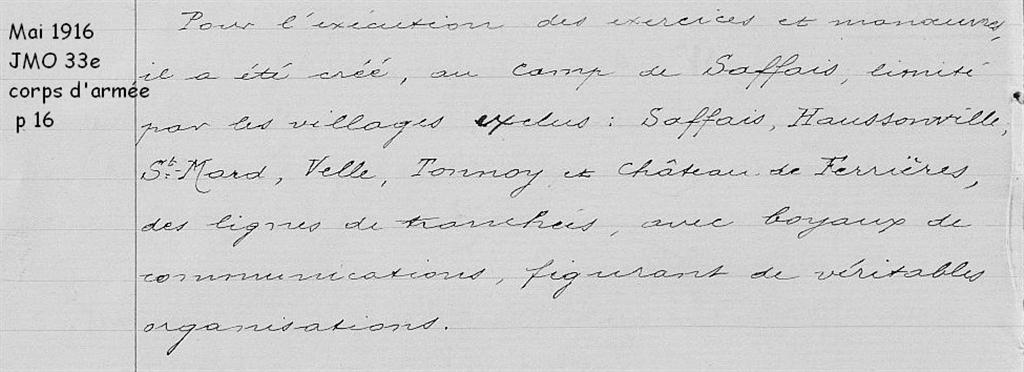 Mai 1916
JMO 33e
corps d'armée
p 16
Pour l'exécution des exercices et manœuvres,
il a été créé, au camp de Saffais, limité
par les villages exclus : Saffais, Haussonville,
St-Mard, Velle, Tonnoy et Château de Ferrières,
des lignes de tranchées, avec boyaux de
communications, figurant de véritables
organisations.